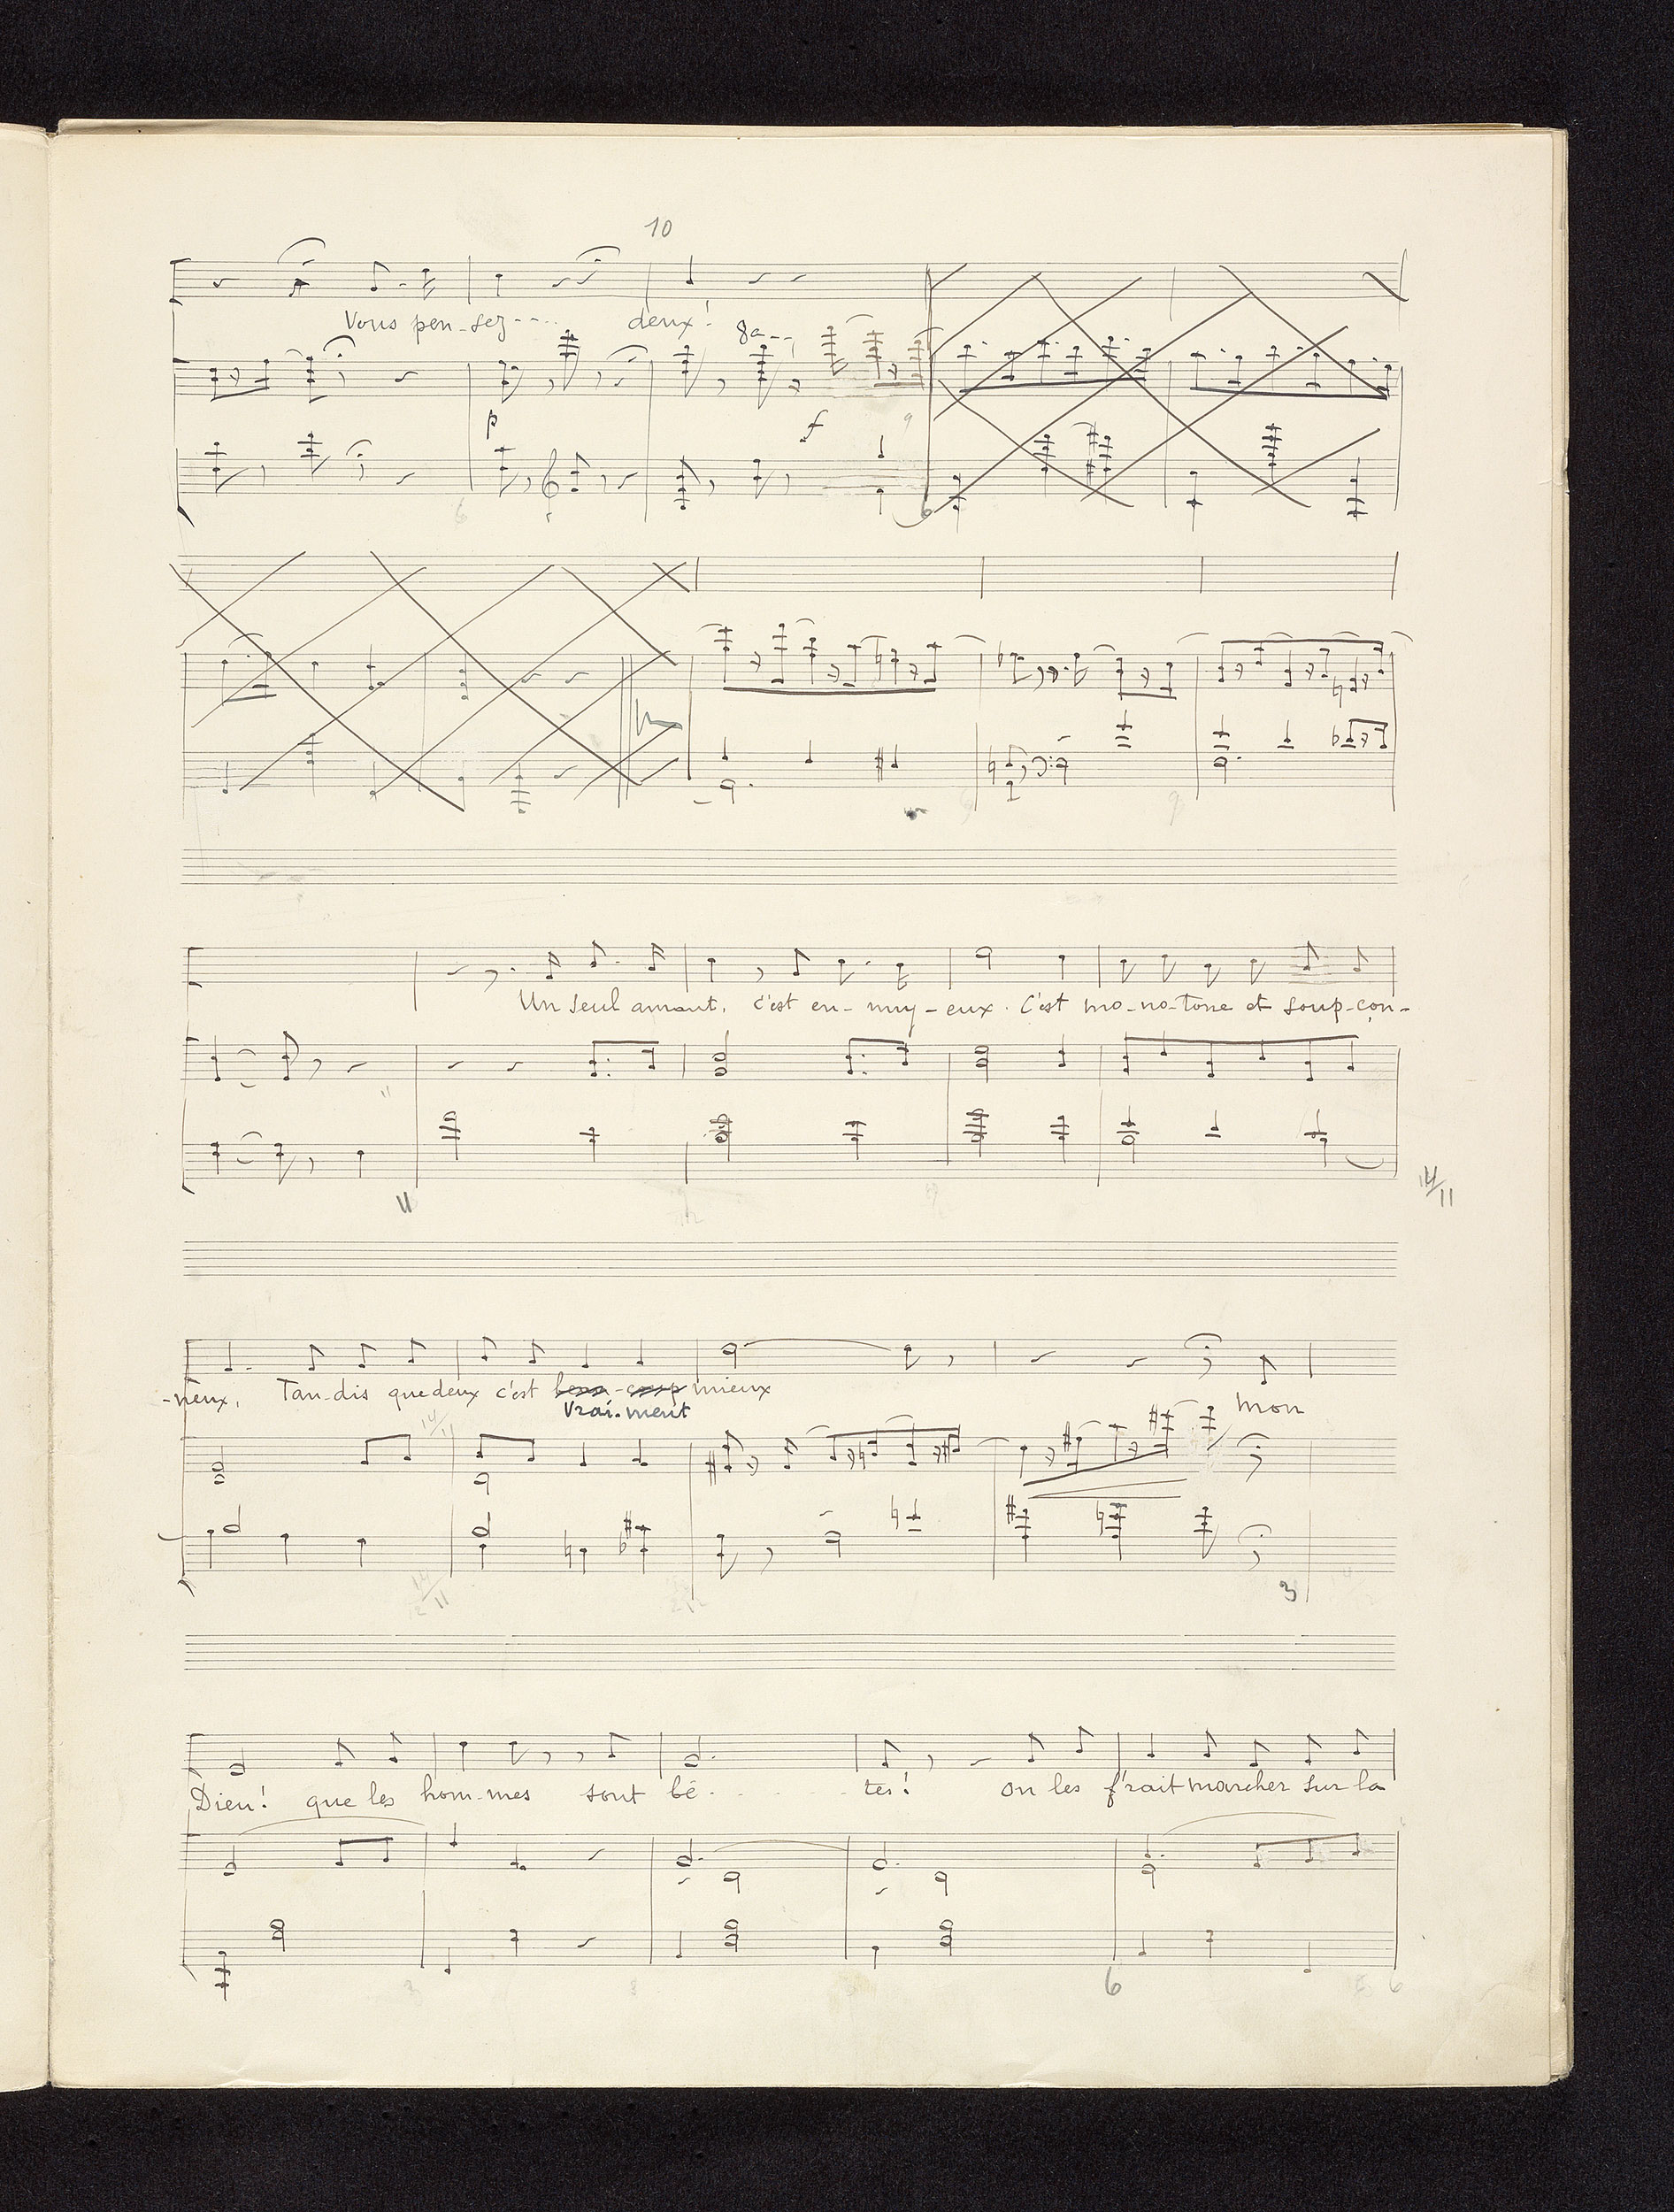 10
Vous pen-sez---.. deux!
8a--
p f
9
6 6
9
Un seul amant, c'est en-nuy-eux. C'est mo-no-tone et soup-çon-
11
11 14/11
-neux, Tan-dis que deux c'est beau-coup mieux
Vrai-ment mon
14/11
14/11
3
Dieu! que les hom-mes sont bê. . . . -tes! on les f'rait marcher sur la
3 3 6 6